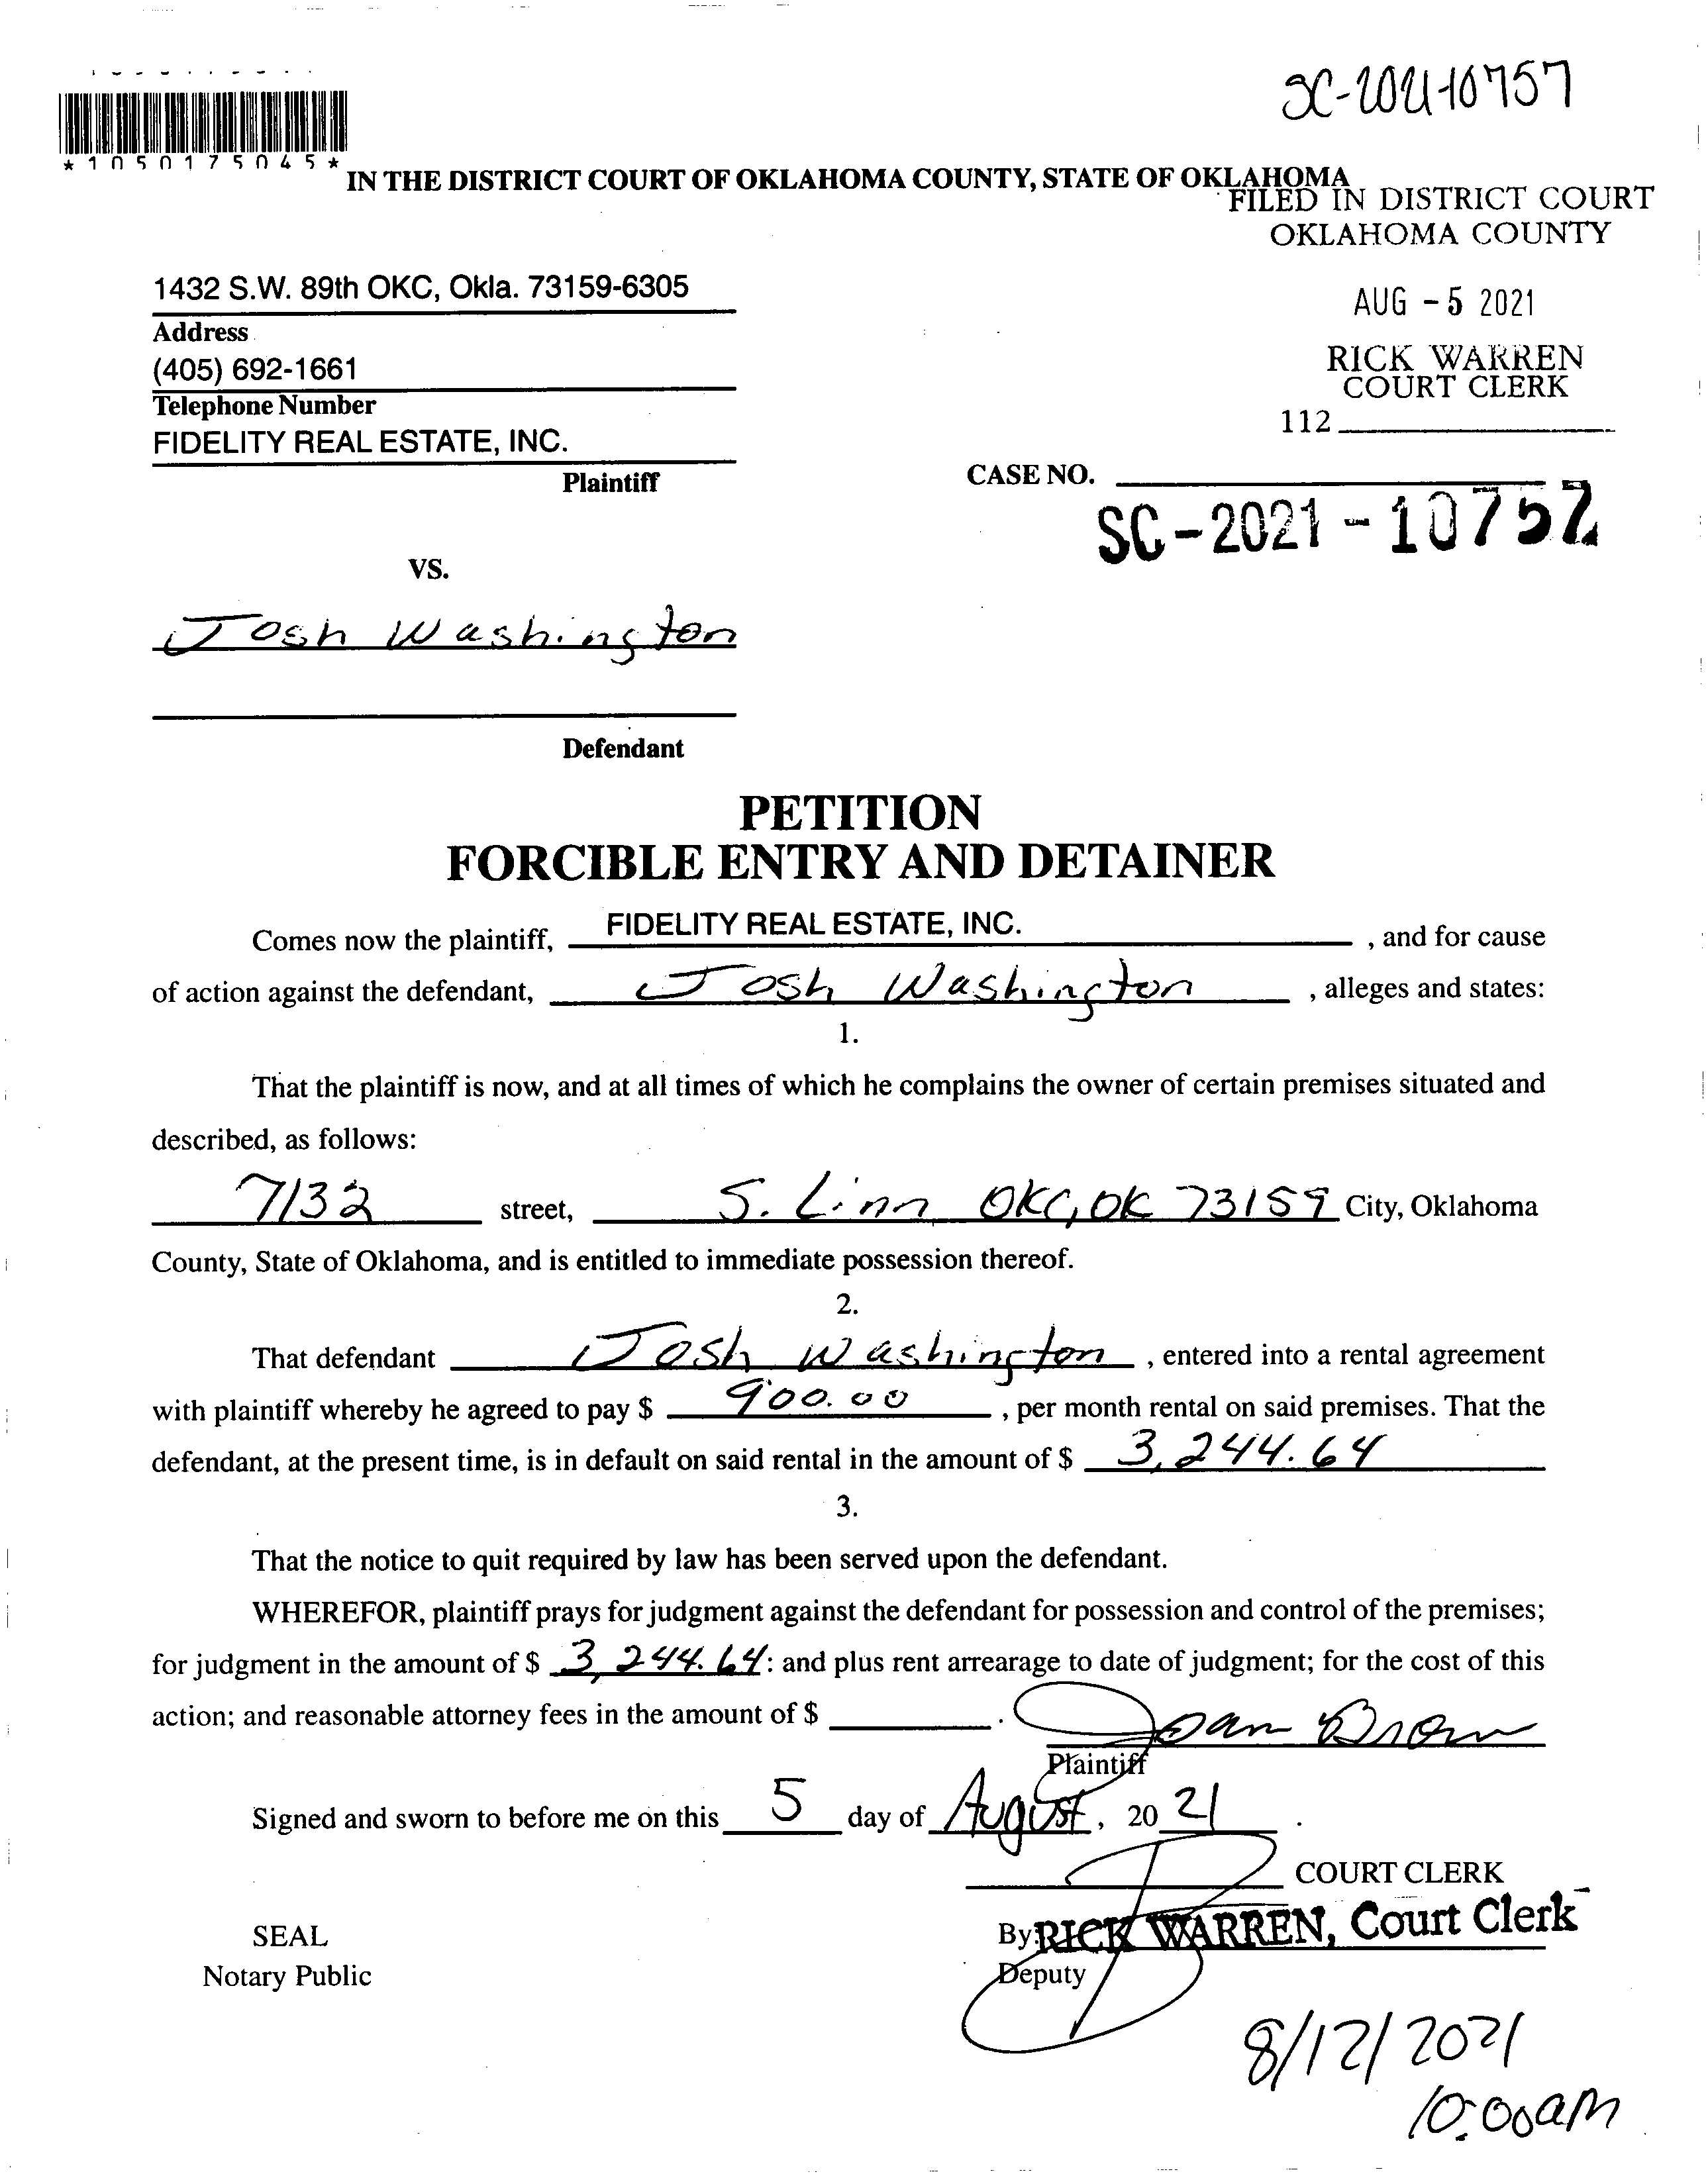 SC-2021-10757
*1050175045*
IN THE DISTRICT COURT OF OKLAHOMA COUNTY, STATE OF OKLAHOMA
FILED IN DISTRICT COURT
OKLAHOMA COUNTY
1432 S.W. 89th OKC, Okla. 73159-6305
AUG -5 2021
Address
(405) 692-1661
RICK WARREN
COURT CLERK
Telephone Number
112
FIDELITY REAL ESTATE, INC.
Plaintiff
CASE NO.
SC-2021-10757
VS.
Josh Washington
Defendant
PETITION
FORCIBLE ENTRY AND DETAINER
Comes now the plaintiff, FIDELITY REAL ESTATE, INC. , and for cause
of action against the defendant, Josh Washington , alleges and states:
1.
That the plaintiff is now, and at all times of which he complains the owner of certain premises situated and
described, as follows:
7132 street, S. Linn OKC, OK 73159 City, Oklahoma
County, State of Oklahoma, and is entitled to immediate possession thereof.
2.
That defendant Josh Washington , entered into a rental agreement
with plaintiff whereby he agreed to pay $ 900.00 , per month rental on said premises. That the
defendant, at the present time, is in default on said rental in the amount of $ 3,244.64
3.
That the notice to quit required by law has been served upon the defendant.
WHEREFOR, plaintiff prays for judgment against the defendant for possession and control of the premises;
for judgment in the amount of $ 3,244.64: and plus rent arrearage to date of judgment; for the cost of this
action; and reasonable attorney fees in the amount of $ . Joan Brown
Plaintiff
Signed and sworn to before me on this 5 day of August, 20 21 .
COURT CLERK
SEAL
By: RICK WARREN, Court Clerk
Notary Public
Deputy
8/12/2021
10:00am